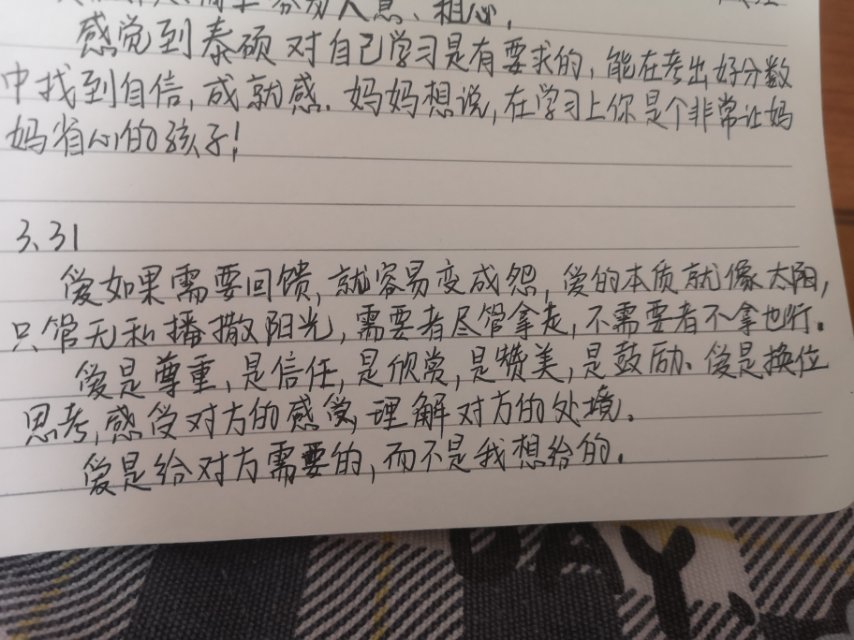 感觉到泰硕对自己学习是有要求的,能在考出好分数
中找到自信,成就感.妈妈想说,在学习上你是个非常让妈
妈省心的孩子!
3.31
爱如果需要回馈,就容易变成怨,爱的本质就像太阳,
只管无私播撒阳光,需要者尽管拿走,不需要者不拿也行。
爱是尊重,是信任,是欣赏,是赞美,是鼓励、爱是换位
思考,感受对方的感觉,理解对方的处境.
爱是给对方需要的,而不是我想给的.